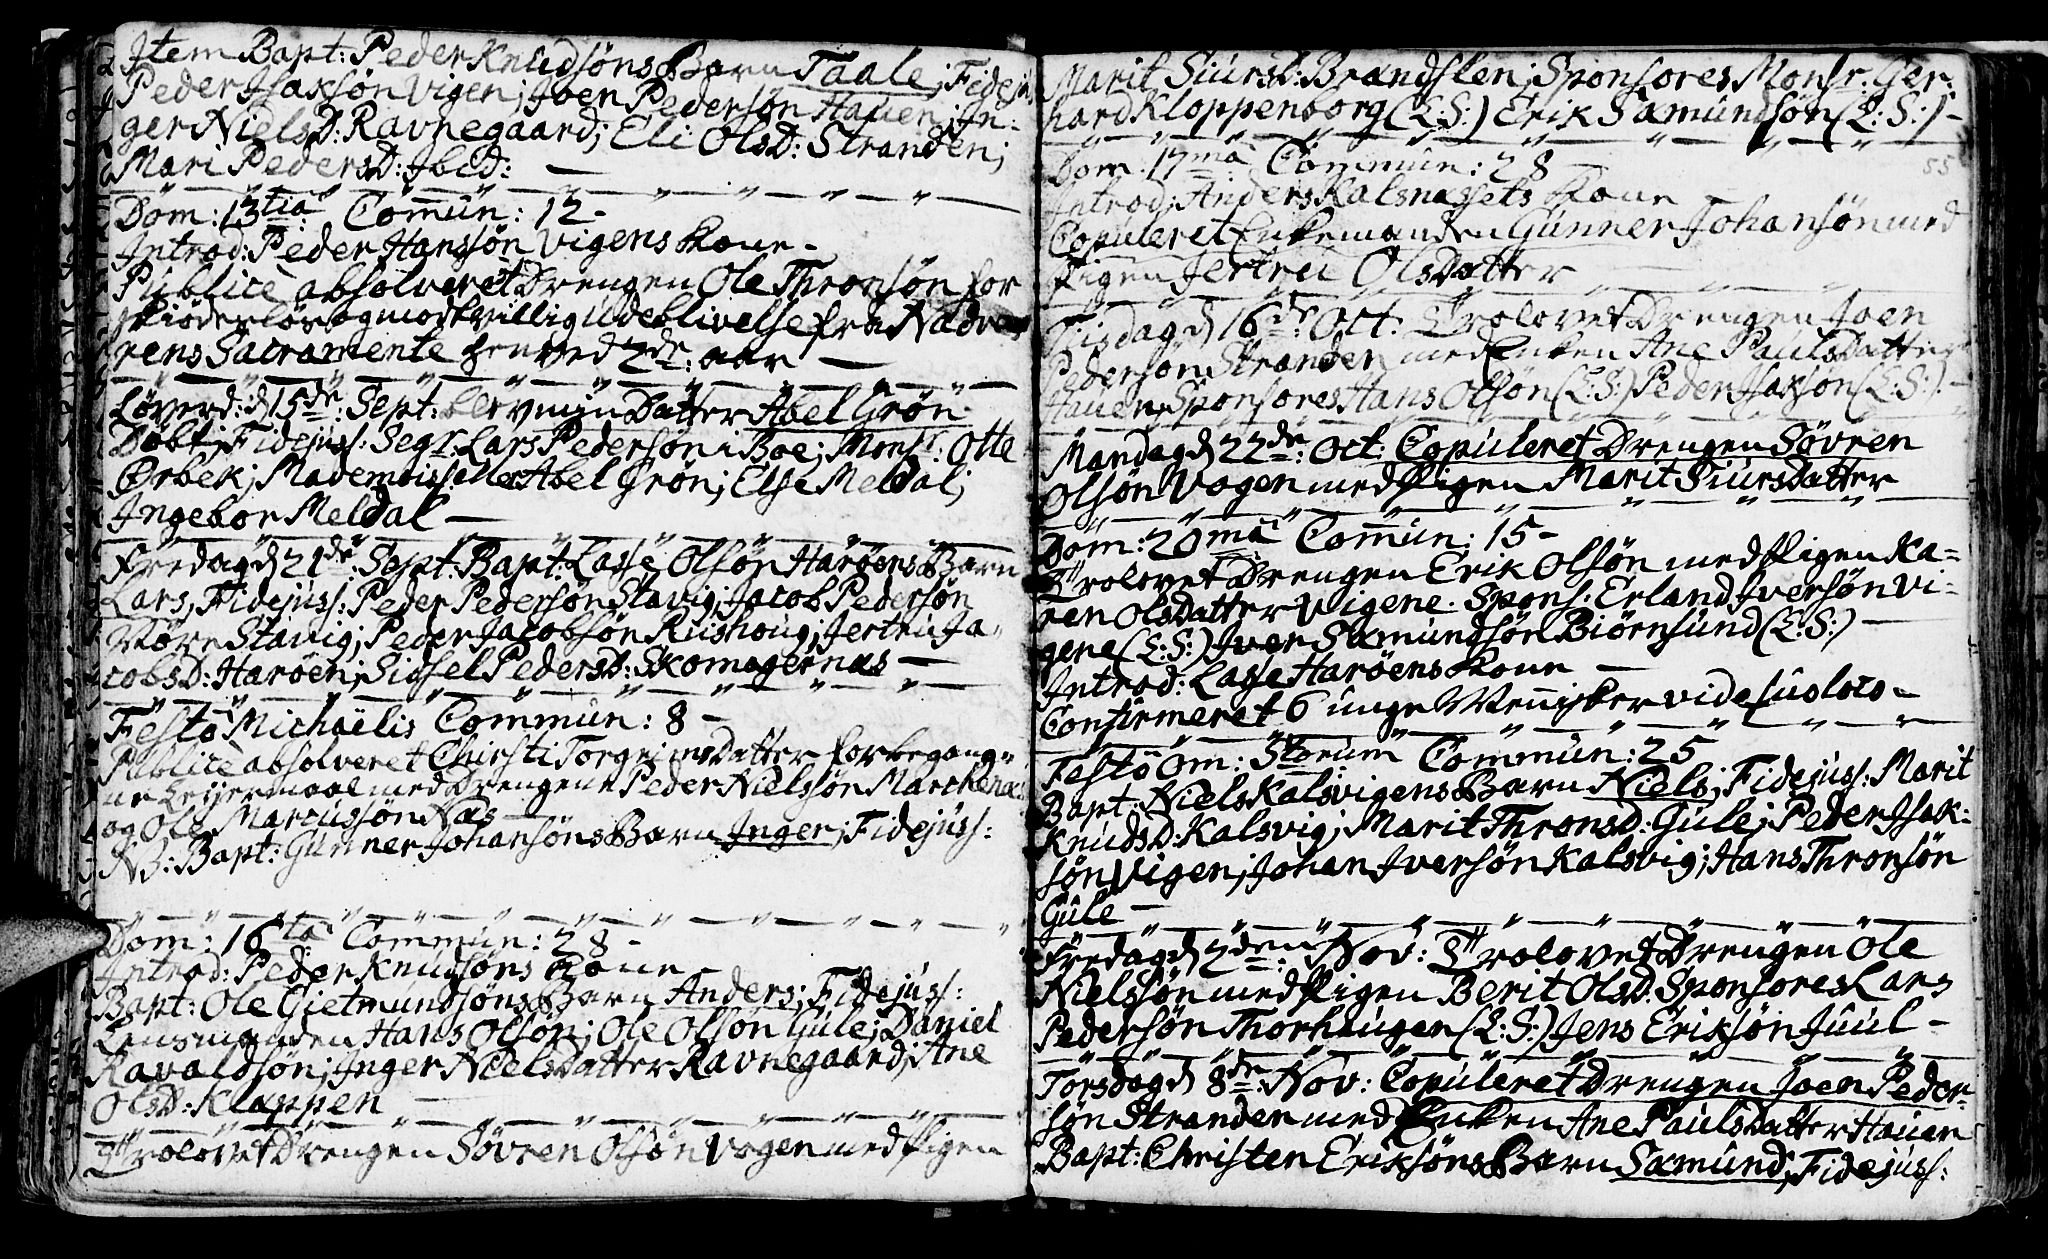 Item Bapt: Peder Knudsøns Barn Taale; Fidejus
Peder Isaksøn Vigen; Joen Pedersøn Hauen; In:
ger NielsD: Ravnegaard; Eli OlsD: Stranden;
Mari PedersD: Ibid: —
Dom: 13tia Comun: 12 -
Introd: Peder Hanssøn Vigens Kone -
Publicè absolveret Drengen Ole Thronsøn for
og modtvillig Udeblivelse fra Nadve
rens Sacramente henved 2de: aar —
Løverd: d 15de: Sept: blev min Datter Abel Grøn
Døbt; Fidejuss: Segr. Lars Pedersøn i Boe; Monsr: Otte
Ørbek; Mademoisselle Abel Grøn; Else Meldal;
Ingebor Meldal —
Fredag d 21de: Sept: Bapt: Lasse Olsøn Harøens Barn
Lars, Fidejuss: Peder Pedersøn Stavig; Jacob Pedersøn
Stavig; Peder Jacobsøn Rushoug; Jertru Ja:
cobsD: Harøen; Sidsel PedersD: Skomagernæs —
Festo Michaëlis Commun: 8 -
Publicè absolveret Christi Torgeirsdatter for begang:
ne Leyermaal med Drengene Peder Nielssøn
og Ole Marcussøn Næs —
NB: Bapt: Gunner Johansøns Barn Inger; Fidejuss:
Dom: 16ta Commun: 28 -
Introd: Peder Knudsøns Kone —
Bapt: Ole Gietmundsøns Barn Anders; Fidejuss:
Lensmanden Hans Olsøn; Ole Olsøn Gule; Daniel
Ravaldsøn; Inger Nielsdatter Ravnegaard; Ane
OlsD: Klappen —
Trolovet Drengen Søvren Olsøn Vagen med Pigen
Marit SiursD: Brandslen; Sponsores Monsr. Ger:
hard Kloppenborg (L:S:) Erik Samundsøn (L:S:) -
55
Dom. 17ma Commun: 28 —
Introd: Anders Kalsnæssets Kone
Copuleret Enkemanden Gunner Johansøn med
Pigen Jertru Olsdatter
Tiisdag d 16de: Oct: Trolovet Drengen Joen
Pedersøn Stranden med Enken Ane Paulsdatter
Hauen, Sponsores Hans Olsøn (L:S:) Peder Isaksøn (L:S:) -
Mandag d 22de: Oct: Copuleret Drengen Søvren
Olsøn Vagen med Pigen Marit Siursdatter
Dom: 20ma Comun: 15 -
Trolovet Drengen Erik Olsøn med Pigen Ka=
ren Olsdatter Vigene. Spons: Erland Iversøn Vi=
gene (L:S:) Iver Samundsøn Biørnsund (L:S:) —
Introd: Lasse Harøens Kone —
Confirmeret 6 unge Mennisker vide suo loco -
Festo Om: Storum Commun: 25
Bapt: Niels Kalsvigens Barn Niels; Fidejuss: Marit
KnudsD: Kalsvig; Marit ThronsD: Gule; Peder Isak:
søn Vigen; Johan Iversøn Kalsvig; Hans Thronsøn
Gule —
Fredag d 2den: Nov: Trolovet Drengen Ole
Nielssøn med Pigen Berit OlsD. Sponsores Lars
Pedersøn Thorhaugen (L:S:) Jens Eriksøn Juul -
Torsdag d 8de: Nov: Copuleret Drengen Joen Peder=
søn Stranden med Enken Ane Paulsdatter Hauen
Bapt: Christen Eriksøns Barn Samund; Fidejuss: